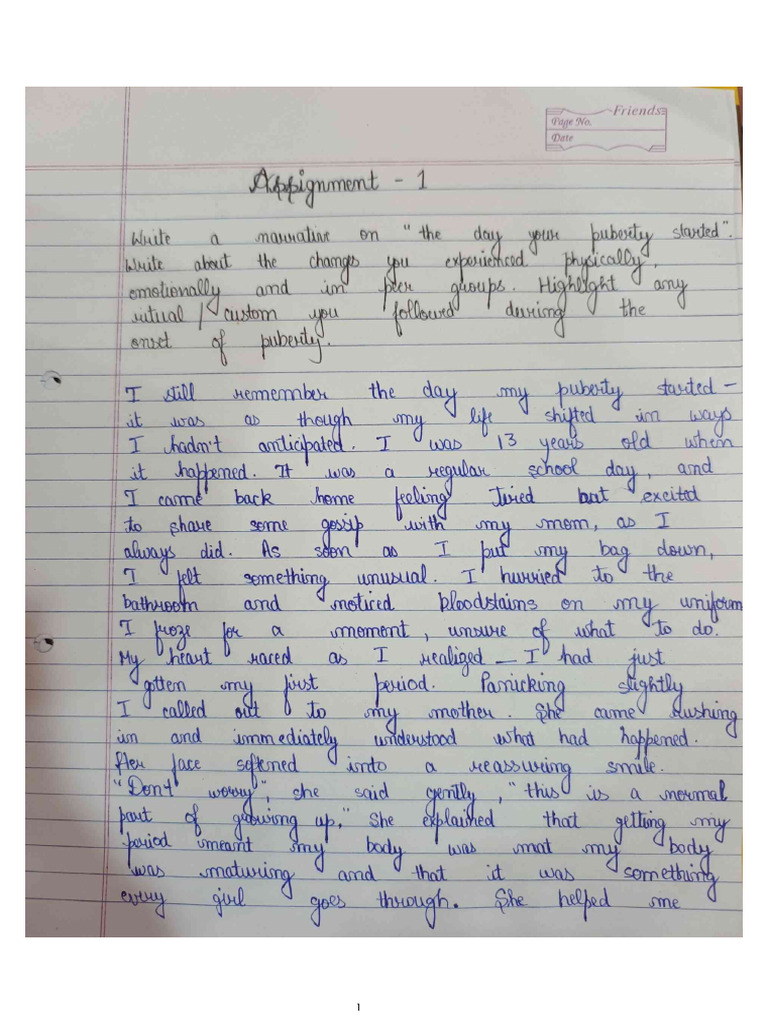 Friends
Page No.
Date
Assignment - 1
Write a narrative on "the day your puberty started".
Write about the changes you experienced physically,
emotionally and in peer groups. Highlight any
ritual / custom you followed during the
onset of puberty.
I still remember the day my puberty started –
it was as though my life shifted in ways
I hadn't anticipated. I was 13 years old when
it happened. It was a regular school day, and
I came back home feeling tired but excited
to share some gossip with my mom, as I
always did. As soon as I put my bag down,
I felt something unusual. I hurried to the
bathroom and noticed bloodstains on my uniform
I froze for a moment, unsure of what to do.
My heart raced as I realized – I had just
gotten my first period. Panicking slightly
I called out to my mother. She came rushing
in and immediately understood what had happened.
Her face softened into a reassuring smile.
"Don't worry", she said gently, "this is a normal
part of growing up." She explained that getting my
period meant my body was mat my body
was maturing and that it was something
every girl goes through. She helped me
1